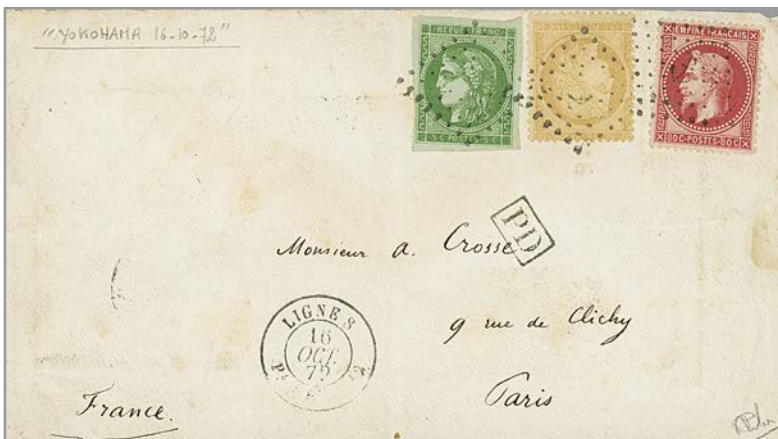 "YOKOHAMA 16-10-72"
REPUB. FRANC.
5 C. POSTES 5 C.
EMPIRE FRANÇAIS
80 C POSTES 80 C
PD
Monsieur A. Crosse
9 rue de Clichy
Paris
LIGNE
16
OCT.
72
France.